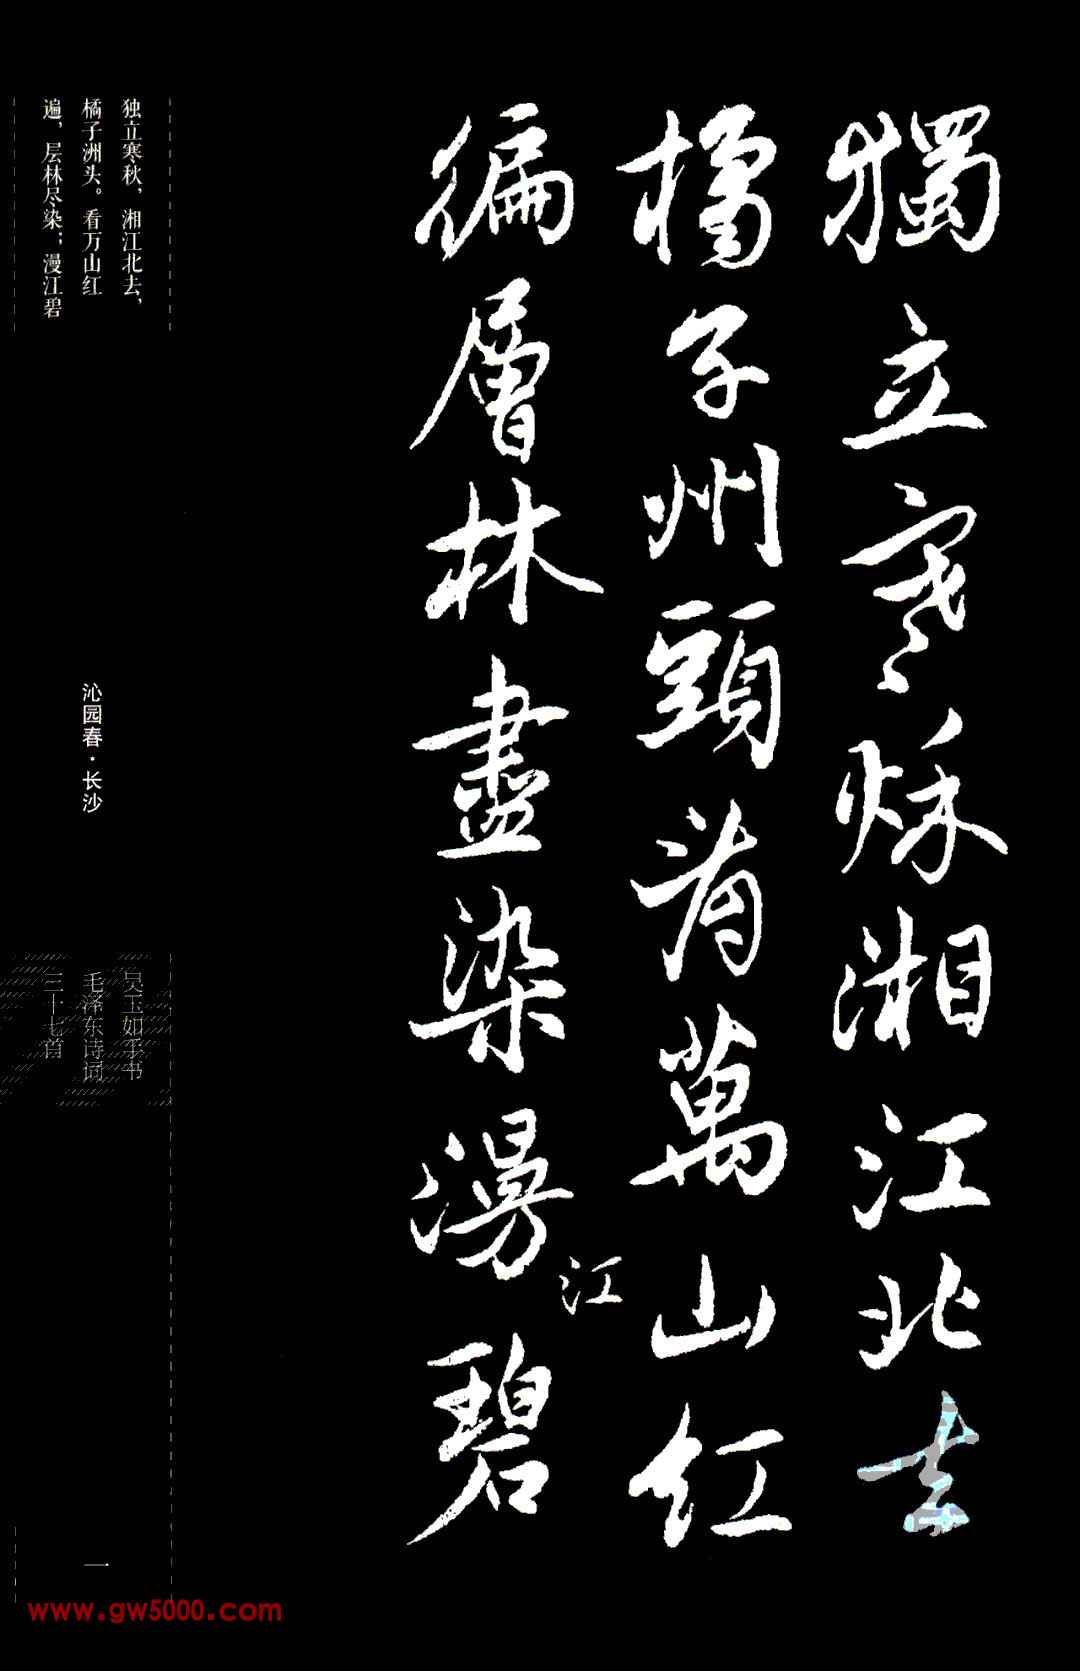 獨立寒秌湘江北去
橘子州頭看萬山红
徧層林盡染漫江碧
独立寒秋，湘江北去，
橘子洲头。看万山红
遍，层林尽染；漫江碧
沁园春·长沙
吴玉如手书
毛泽东诗词
三十七首
一
www.gw5000.com